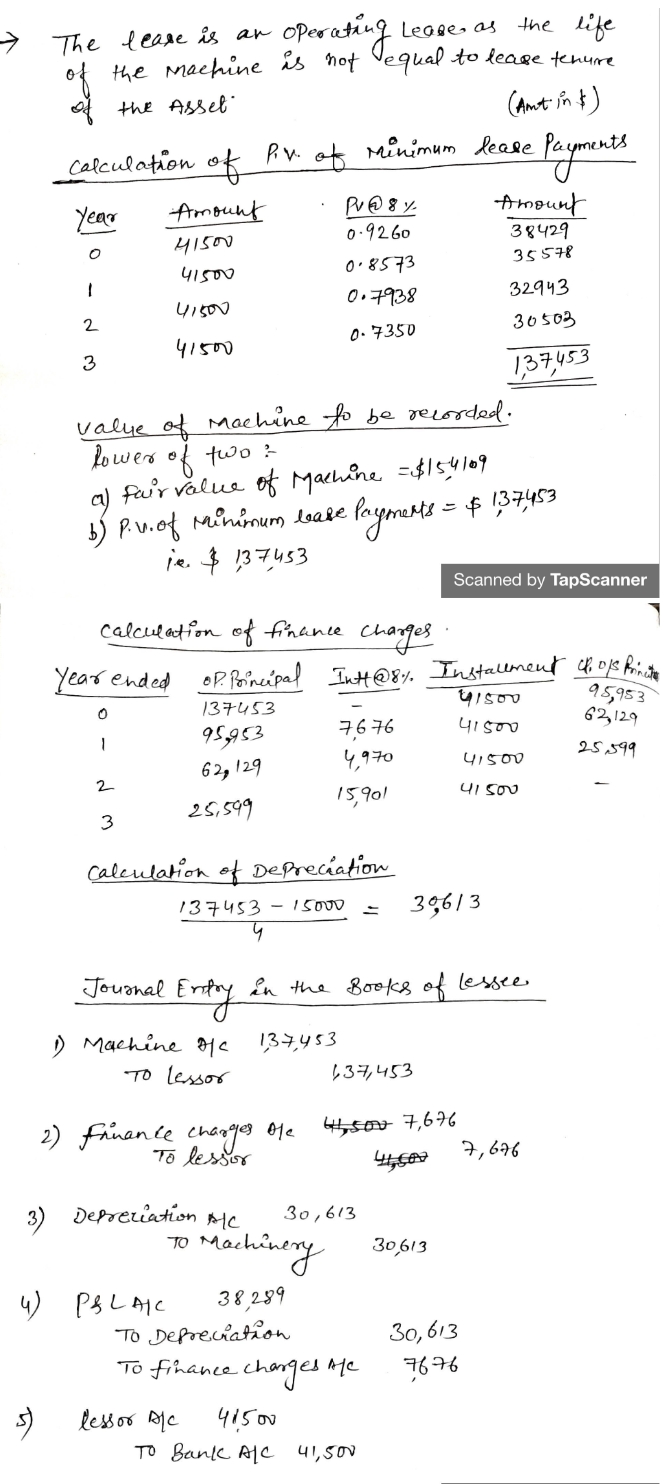 → The lease is an operating Lease as the life
of the Machine is not equal to lease tenure
of the Asset.
(Amt in $)
Calculation of P.V. of Minimum lease Payments
Year Amount PV@8% Amount
0 41500 0.9260 38429
1 41500 0.8573 35578
2 41500 0.7938 32943
3 41500 0.7350 30503
1,37,453
Value of Machine to be recorded.
lower of two :-
a) Fair value of Machine = $154109
b) P.V. of Minimum lease Payments = $ 137,453
i.e. $ 137453
Scanned by TapScanner
Calculation of finance charges
Year ended OP. Principal Intt@8% Installment Cl. O/S Principal
0 137453 - 41500 95,953
1 95,953 7,676 41500 62,129
2 62,129 4,970 41500 25,599
3 25,599 15,901 41500 -
Calculation of Depreciation
137453 - 15000 = 30,613
4
Journal Entry in the Books of lessee
1) Machine A/c 1,37,453
To lessor 1,37,453
2) Finance charges A/c 41,500 7,676
To lessor 41,500 7,676
3) Depreciation A/c 30,613
To Machinery 30,613
4) P&L A/c 38,289
To Depreciation 30,613
To finance charges A/c 7676
5) lessor A/c 41,500
To Bank A/c 41,500